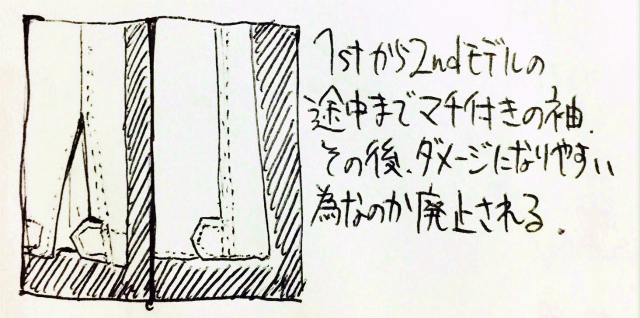 1stから2ndモデルの
途中までマチ付きの袖.
その後、ダメージになりやすい
為なのか廃止される.